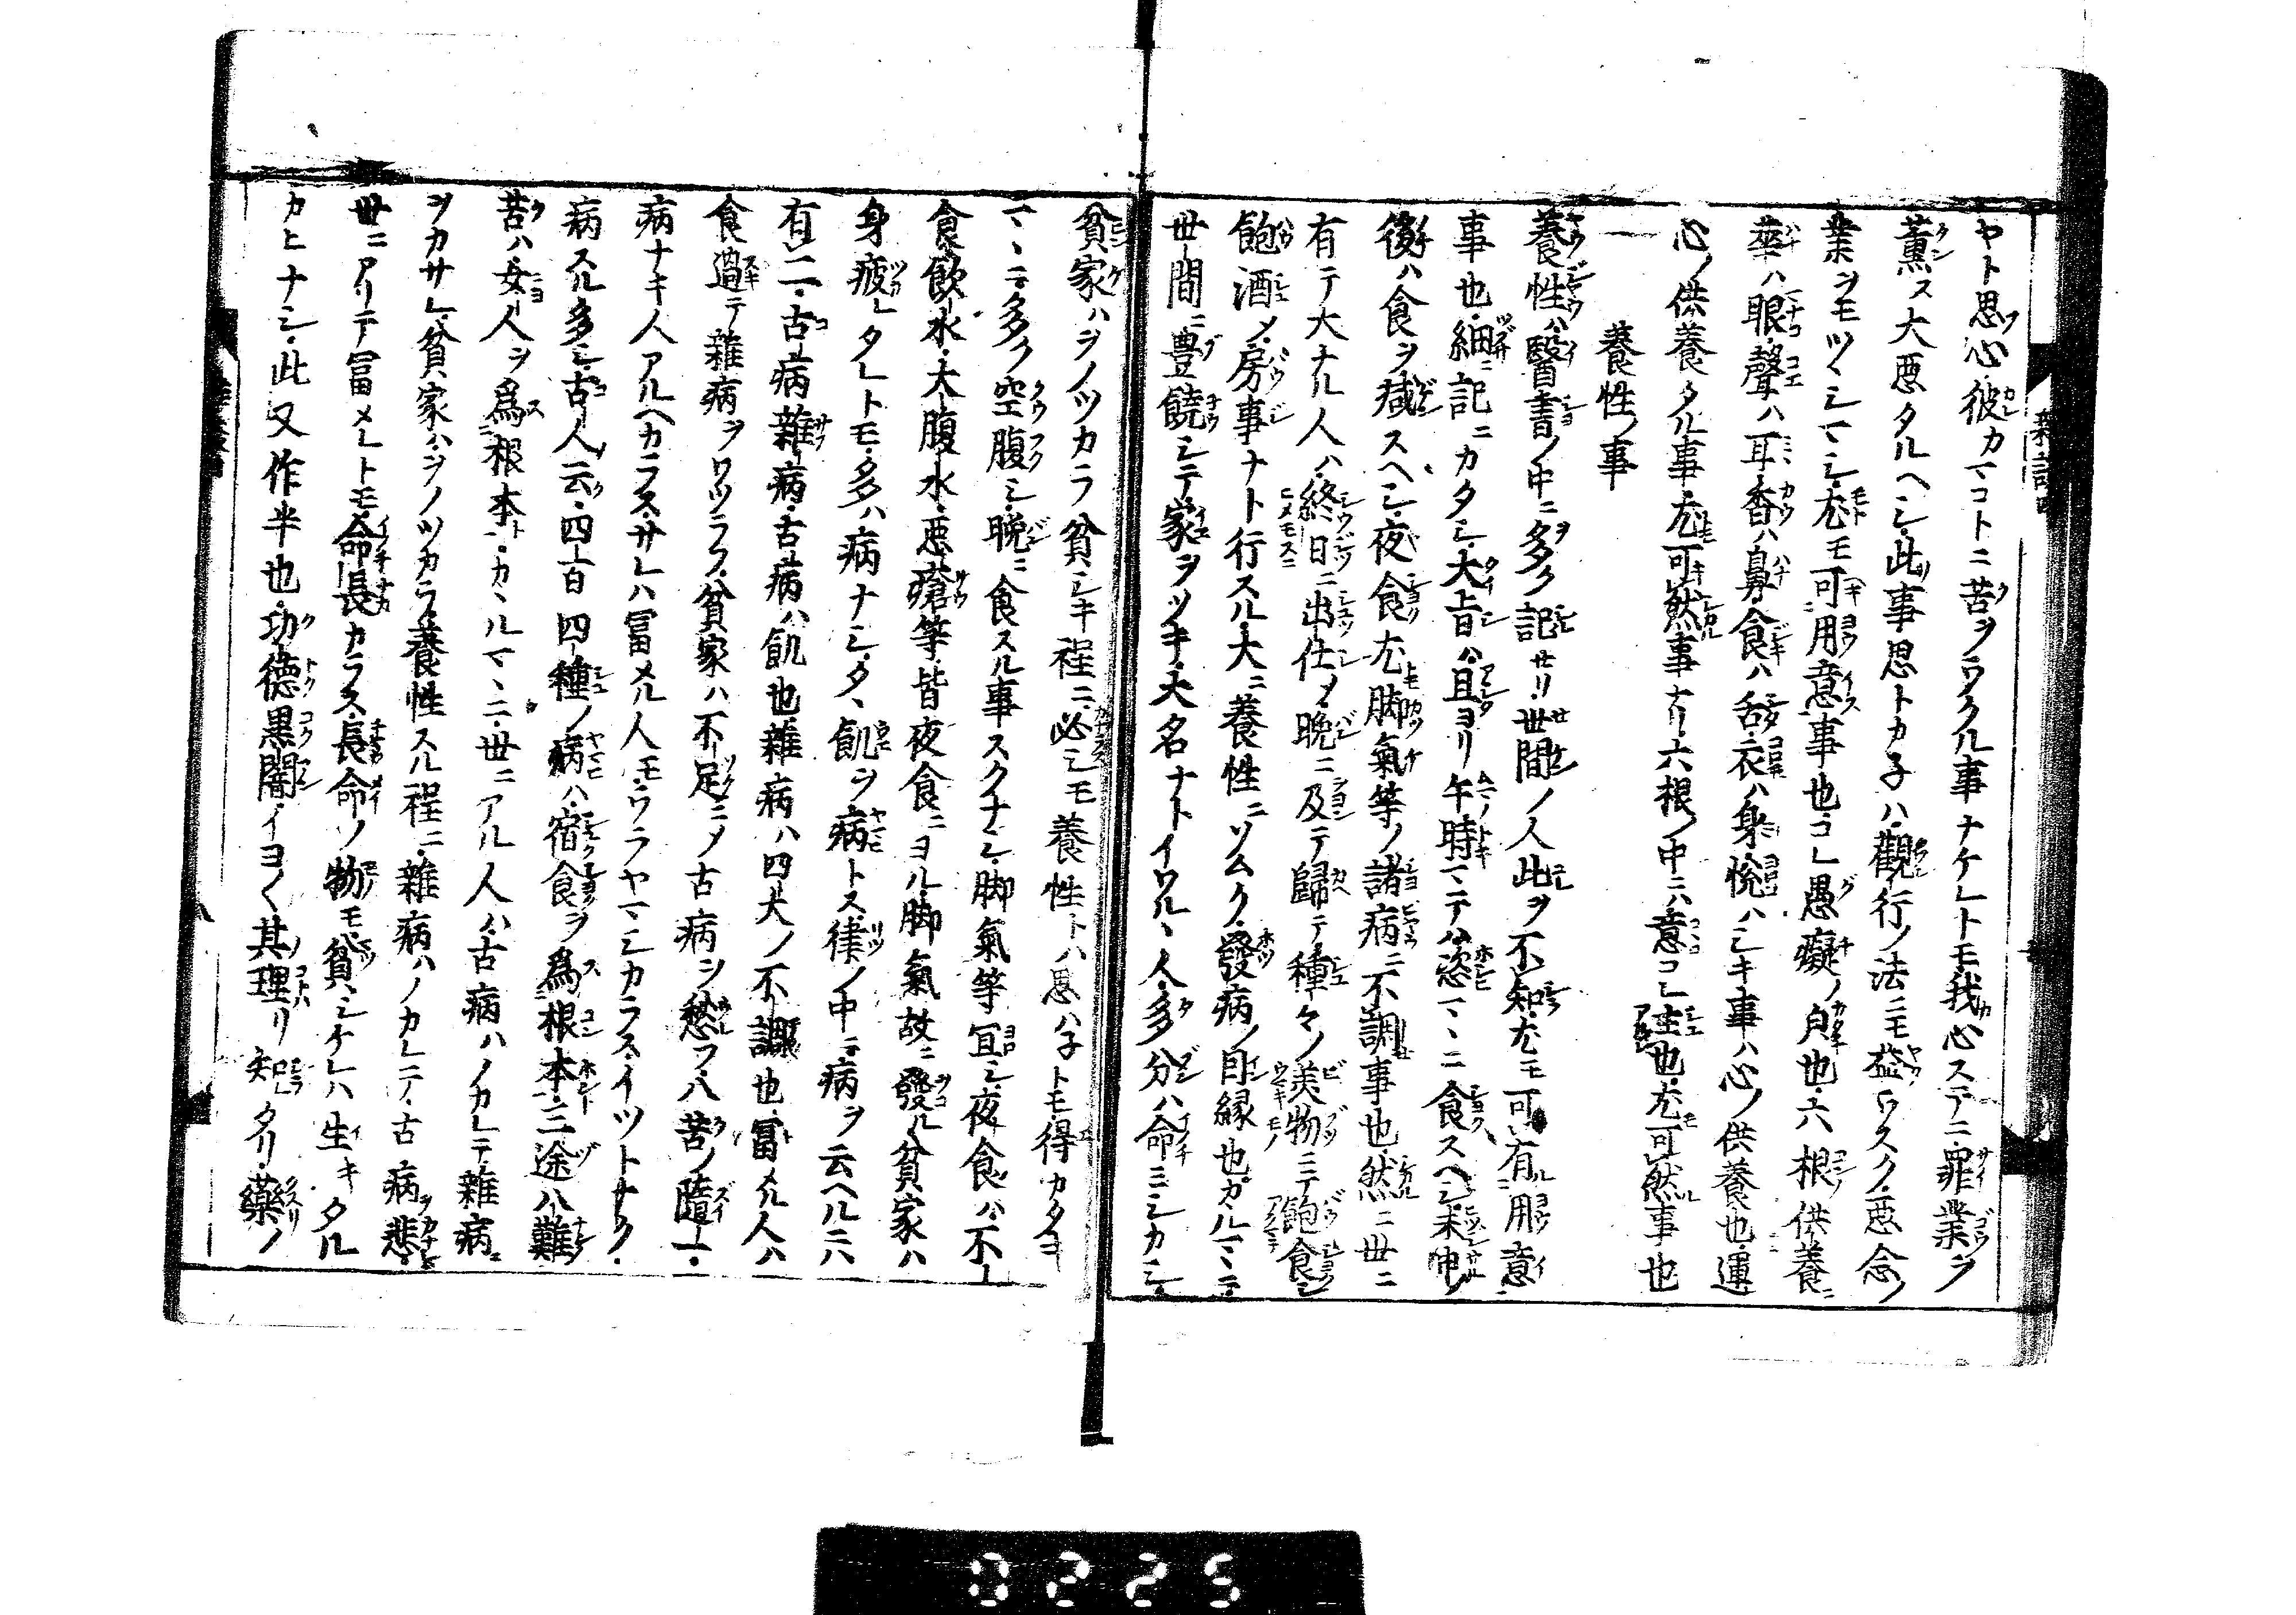 ヤト思フ心彼カマコトニ苦ヲウクル事ナケレトモ我心ステニ罪業ヲ
薫ス大悪タルヘシ此事思トカ子ハ觀行ノ法ニモ益ウスク悪念ノ
業ヲモツヽシマシ尤モ可用意事也コレ愚癡ノ也六根供養ニ
華ハ眼聲ハ耳香ハ鼻食ハ舌衣ハ身悦ハシキ事ハ心ノ供養也運
心ノ供養タル事尤可然事ナリ六根ノ中ニハ意コレ主也尤可然事也
一　養性ノ事
養性ハ醫書ノ中ニ多ク記セリ世間ノ人此ヲ不知尤モ可有用意
事也細ニ記ニカタシ大旨ハ且ヨリ午時マテハ恣マヽニ食スヘシ未申ノ
後ハ食ヲ減スヘシ夜食尤脚氣等ノ諸病ニ不調事也然ニ世ニ
有テ大ナル人ハ終日ニ出仕メ晩ニ及テ歸テ種々ノ美物ニテ飽食シ
飽酒メ房事ナト行スル大ニ養性ニソムク發病ノ因縁也カルマヽニテ
世間ニ豊饒シテ家ヲツキ大名ナトイワルヽ人多分ハ命ミシカシ
貧家ハヲノツカラ貧シキ程ニ必シモ養性トハ思ハ子トモ得カタキ
マヽニテ多ク空腹シ晩ニ食スル事スクナシ脚氣等冝シ夜食ハ不
食飲水大腹水悪瘡等皆夜食ニヨル脚氣故ニ發ル貧家ハ
身疲レタレトモ多ハ病ナシタヽ飢ヲ病トス律ノ中ニ病ヲ云ヘルニハ
有二古病雜病古病ハ飢也雜病ハ四大ノ不調也冨メル人ハ
食過テ雜病ヲワツラフ貧家ハ不足ニメ古病ヲ愁フ八苦ノ隨一
病ナキ人アルヘカラスサレハ冨メル人モウラヤマシカラスイツトナク
病スル多シ古人云四百四種ノ病ハ宿食ヲ爲根本三途八難
苦ハ女人ヲ爲根本トカヽルマヽニ世ニアル人ハ古病ハノカレテ雜病ニ
ヲカサレ貧家ハヲノツカラ養性スル程ニ雜病ハノカレテ古病ヲ悲
世ニアリテ冨メレトモ命長カラス長命ソ物モ貧シケレハ生キタル
カヒナシ此又作半也功德黒闇イヨ〱其理リ知レタリ藥ノ